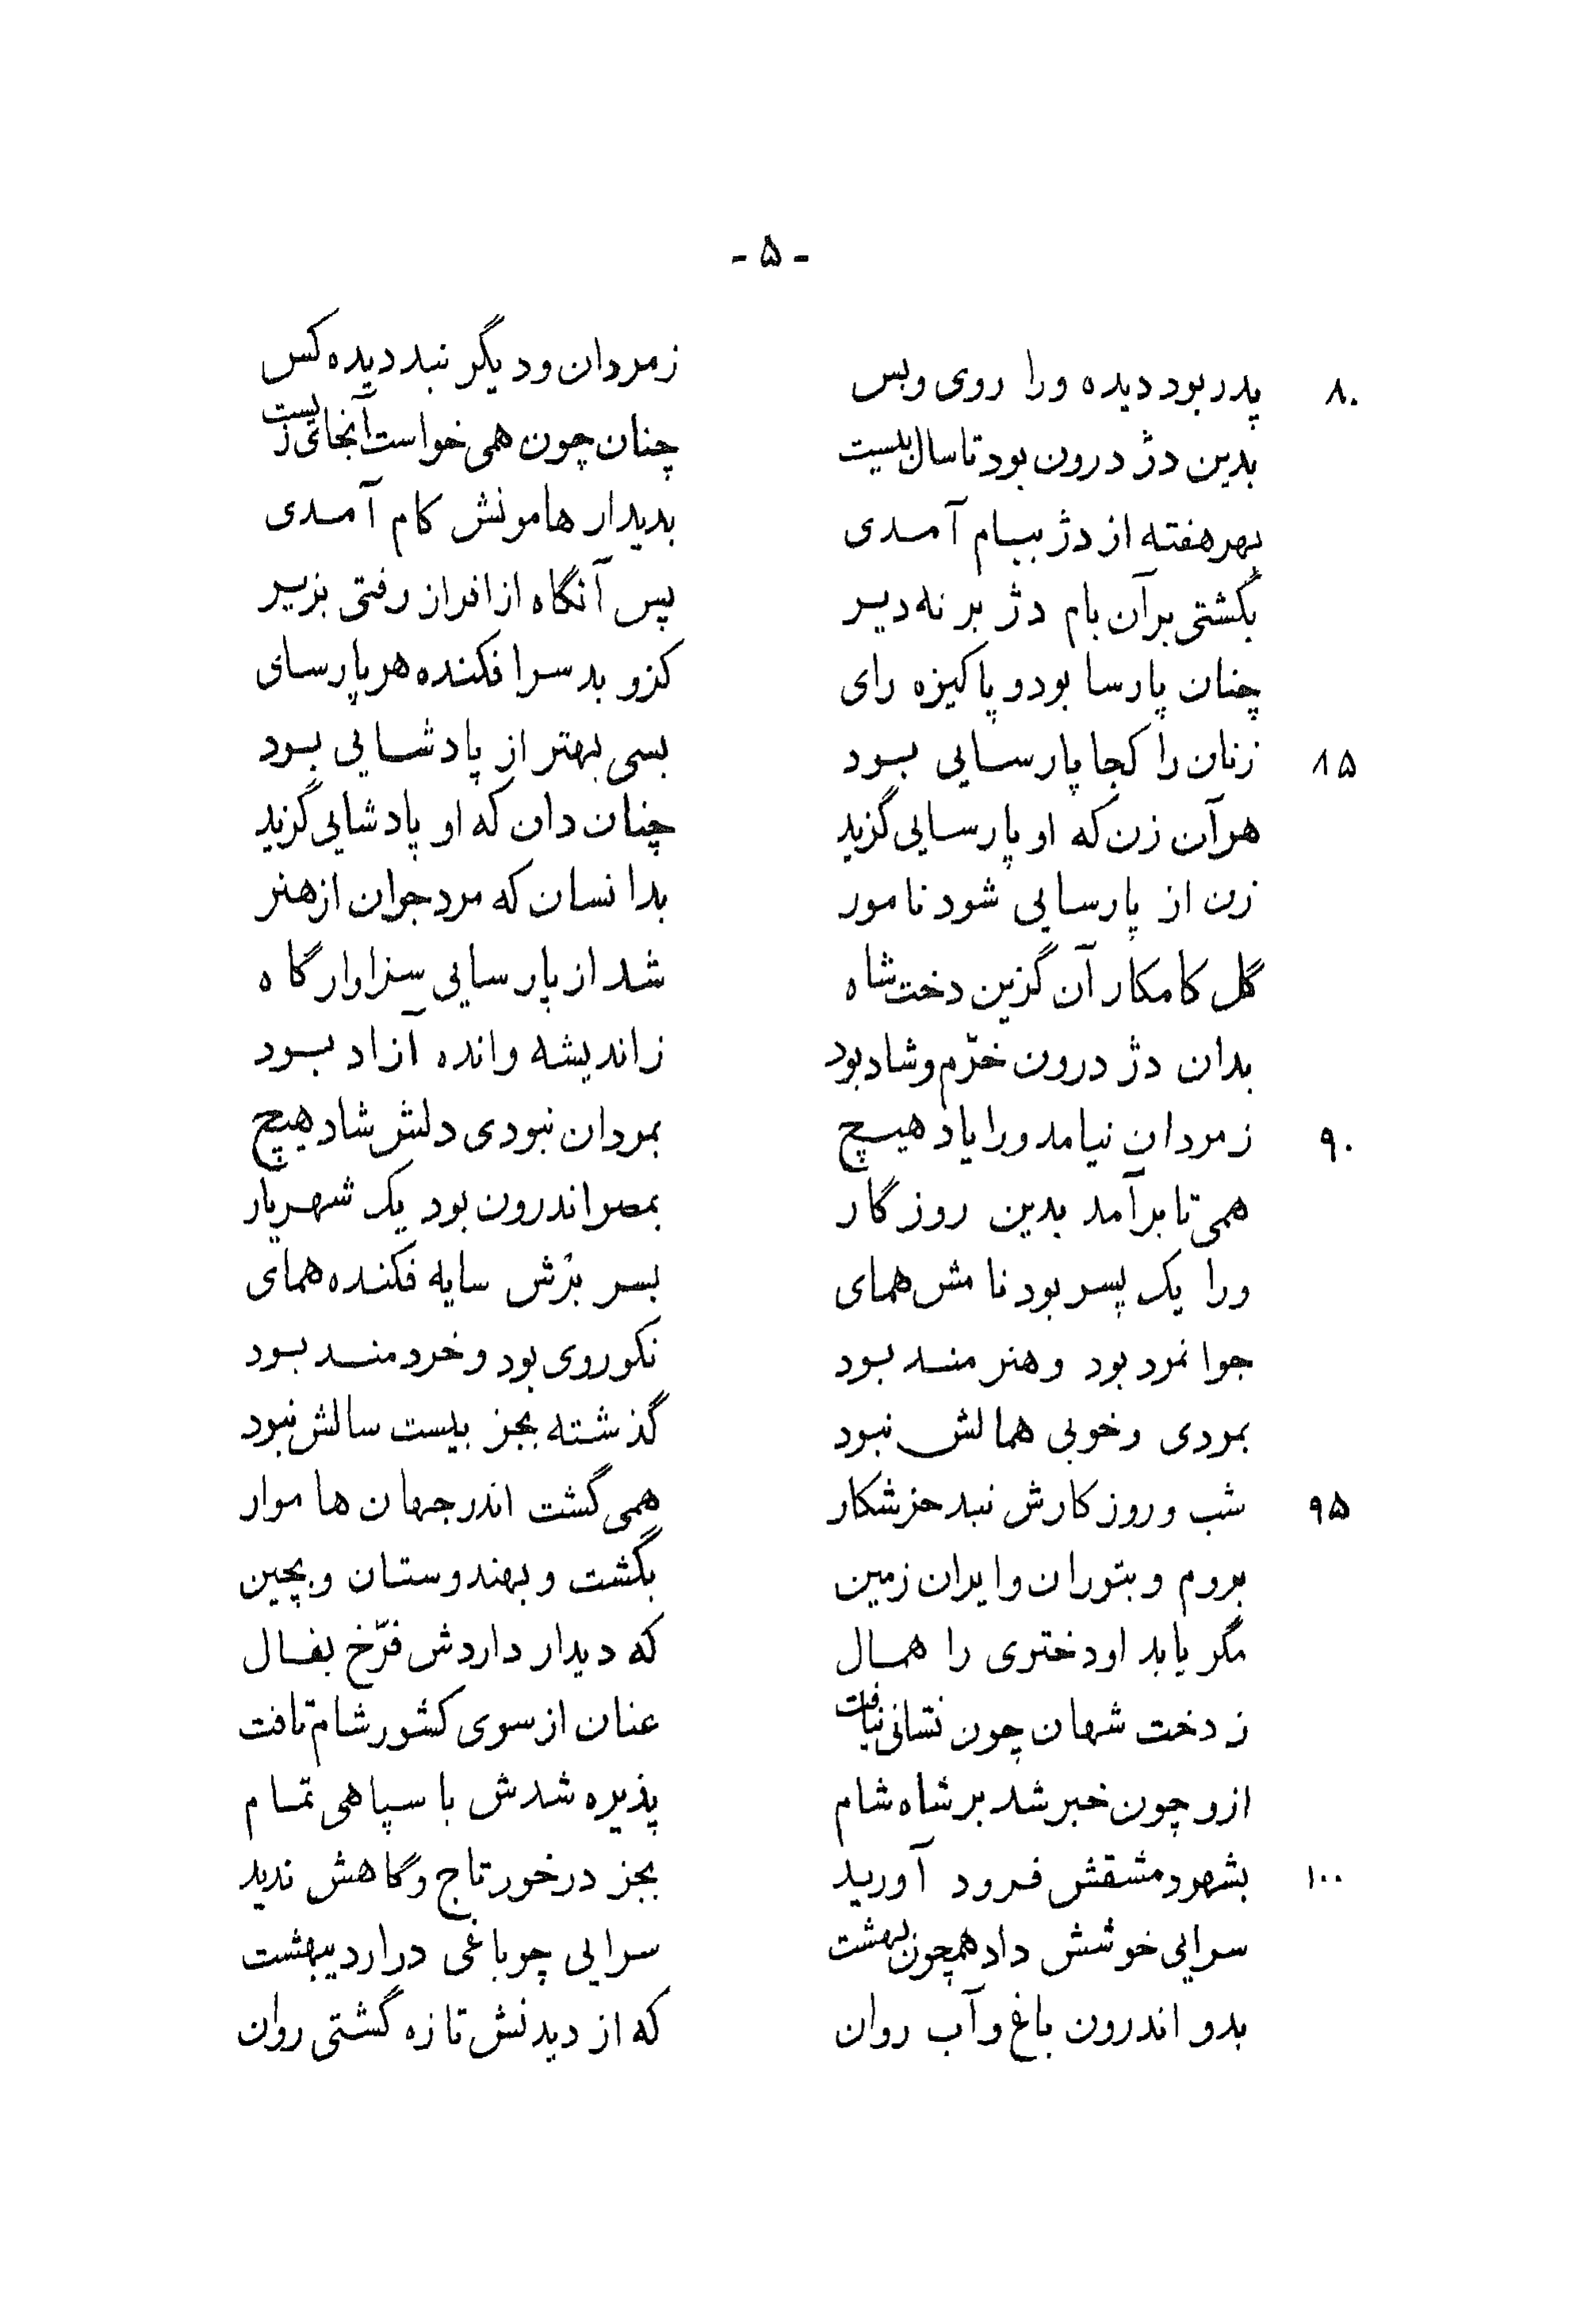 - ۵ -
۸۰ پدر بود دیده ورا روی وبس زمردان ودیگر نبد دیده کس
بدین دژ درون بود تاسال بیست چنان چون همی خواست آنجای زیست
بهر هفته از دژ ببام آمدی بدیدار هامونش کام آمدی
بگشتی برآن بام دژ بر نه دیر پس آنگاه از افراز رفتی بزیر
چنان پارسا بود و پاکیزه رای کزو بد سرافکنده هر پارسای
۸۵ زنان را کجا پارسایی بود بسی بهتر از پادشایی بود
هرآن زن که او پارسایی گزید چنان دان که او پادشایی گزید
زن از پارسایی شود نامور بدانسان که مرد جوان از هنر
گل کامکار آن گزین دخت شاه شد از پارسایی سزاوار گاه
بدان دژ درون خرّم وشاد بود زاندیشه وانده آزاد بود
۹۰ زمردان نیامد ورا یاد هیچ بمردان نبودی دلش شاد هیچ
همی تا برآمد بدین روزگار بمصر اندرون بود یک شهریار
ورا یک پسر بود نامش همای بسر برش سایه فکنده همای
جوانمرد بود وهنرمند بود نکوروی بود وخردمند بود
بمردی وخوبی همالش نبود گذشته بجز بیست سالش نبود
۹۵ شب وروز کارش نبد جز شکار همی گشت اندر جهان هاموار
بروم وبتوران وایران زمین بگشت وبهندوستان وبچین
مگر یابد او دختری را همال که دیدار داردش فرّخ بفال
ز دخت شهان چون نشانی نیافت عنان از سوی کشور شام تافت
ازو چون خبر شد بر شاه شام پذیره شدش با سپاهی تمام
۱۰۰ بشهر دمشقش فرود آورید بجز درخور تاج وگاهش ندید
سرایی خوشش داد همچون بهشت سرایی چو باغی در اردیبهشت
بدو اندرون باغ وآب روان که از دیدنش تازه گشتی روان